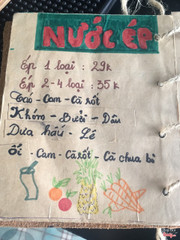 NƯỚC ÉP
Ép 1 loại : 29k
Ép 2-4 loại : 35k
Táo - Cam - Cà rốt
Thơm - Bưởi - Dâu
Dưa hấu - Lê
Ổi - Cam - Cà rốt - Cà chua bi